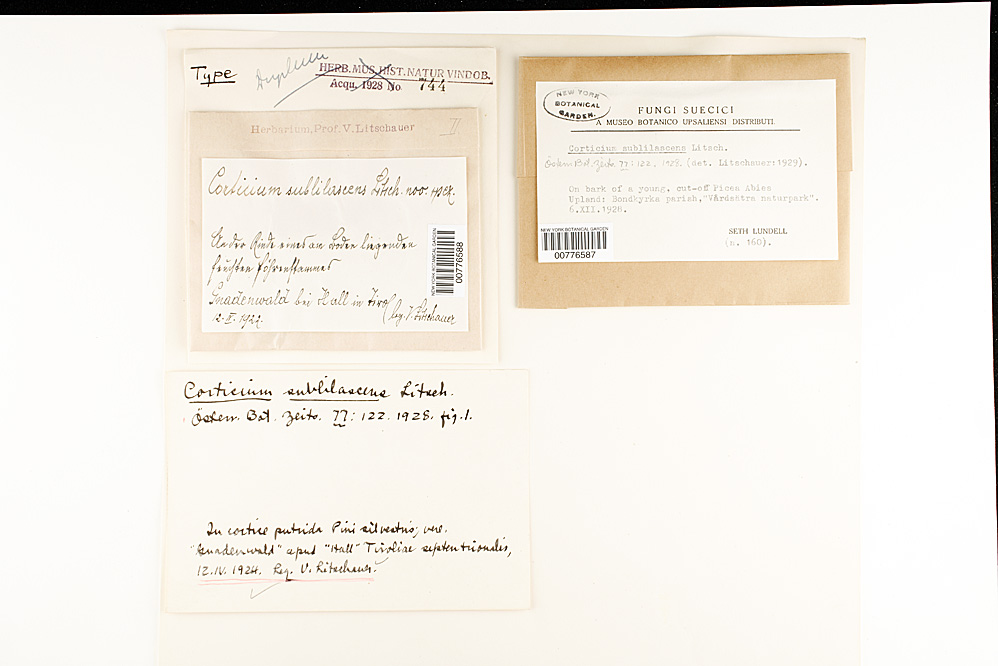 Type
Duplum
HERB. MUS. HIST. NATUR VINDOB.
Acqu. 1928 No 744
Herbarium, Prof. V. Litschauer
II.
Corticium sublilascens Litsch. nov. spez.
An der Rinde eines am Boden liegenden
feuchten Föhrenstammes
Gnadenwald bei Hall in Tirol
leg. V. Litschauer
NEW YORK BOTANICAL GARDEN
00776588
Corticium sublilascens Litsch.
Österr. Bot. Zeits. 77: 122. 1928. fig. 1.
In cortice putrida Pini silvestris; vere.
"Gnadenwald" apud "Hall" Tiroliae septentrionalis,
12.IV. 1924. Leg. V. Litschauer.
NEW YORK
BOTANICAL
GARDEN.
FUNGI SUECICI
A MUSEO BOTANICO UPSALIENSI DISTRIBUTI
Corticium sublilascens Litsch.
Österr. Bot. Zeits. 77: 122. 1928. (det. Litschauer:1929).
On bark of a young, cut-off Picea Abies
Upland: Bondkyrka parish,"Vårdsätra naturpark".
6.XII.1928.
SETH LUNDELL
(n. 160).
NEW YORK BOTANICAL GARDEN
00776587